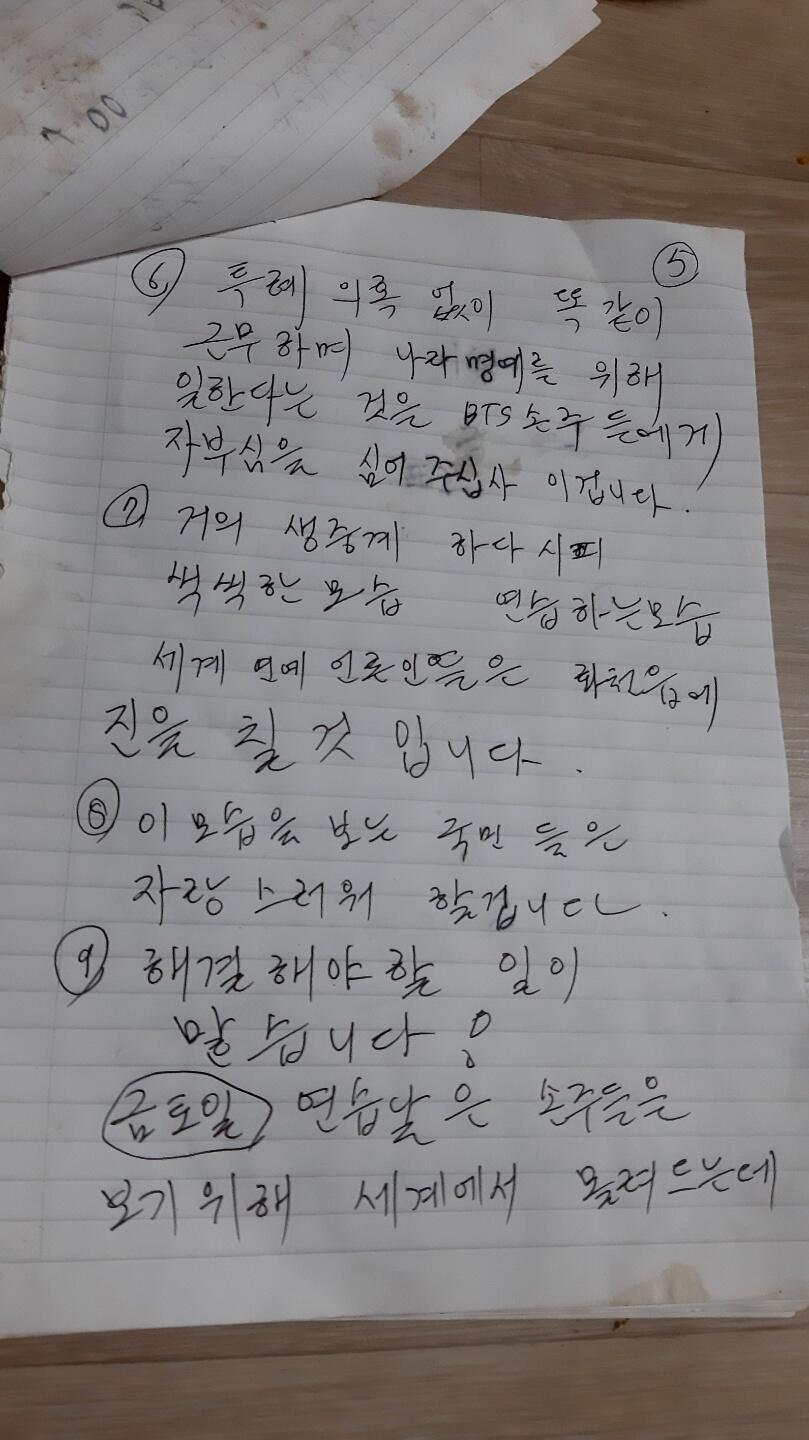 00
⑤
⑥ 투레 의혹 없이 똑같이
근무하며 나라 명예를 위해
일한다는 것을 BTS손주들에게
자부심을 심어 주십사 이겁니다.
⑦ 거의 생중계 하다시피
씩씩한 모습 연습하는모습
세계 연예 언론인뜰은 화천읍에
진을 칠것 입니다.
⑧ 이 모습을 보는 국민들은
자랑스러워 할겁니다.
⑨ 해결해야할 일이
많습니다!
금토일 연습날은 손주들을
보기위해 세계에서 몰려드는데